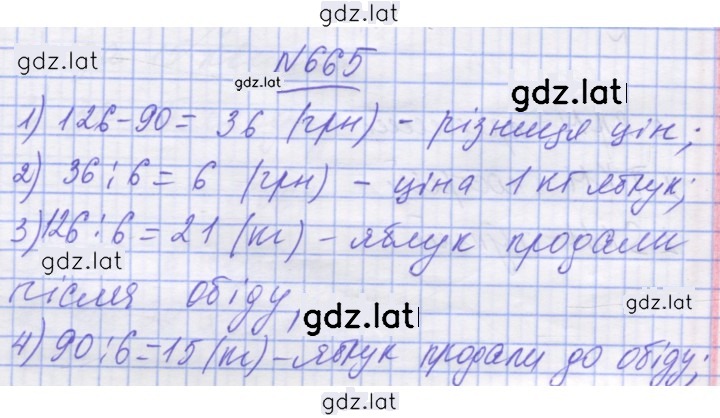 gdz.lat
gdz.lat
№665
gdz.lat
gdz.lat
1) 126-90= 36 (грн) - різниця цін;
2) 36:6= 6 (грн) - ціна 1 кг яблук;
3) 126:6=21 (кг) - яблук продали
gdz.lat
після обіду;
gdz.lat
gdz.lat
4) 90:6=15 (кг) - яблук продали до обіду;
gdz.lat